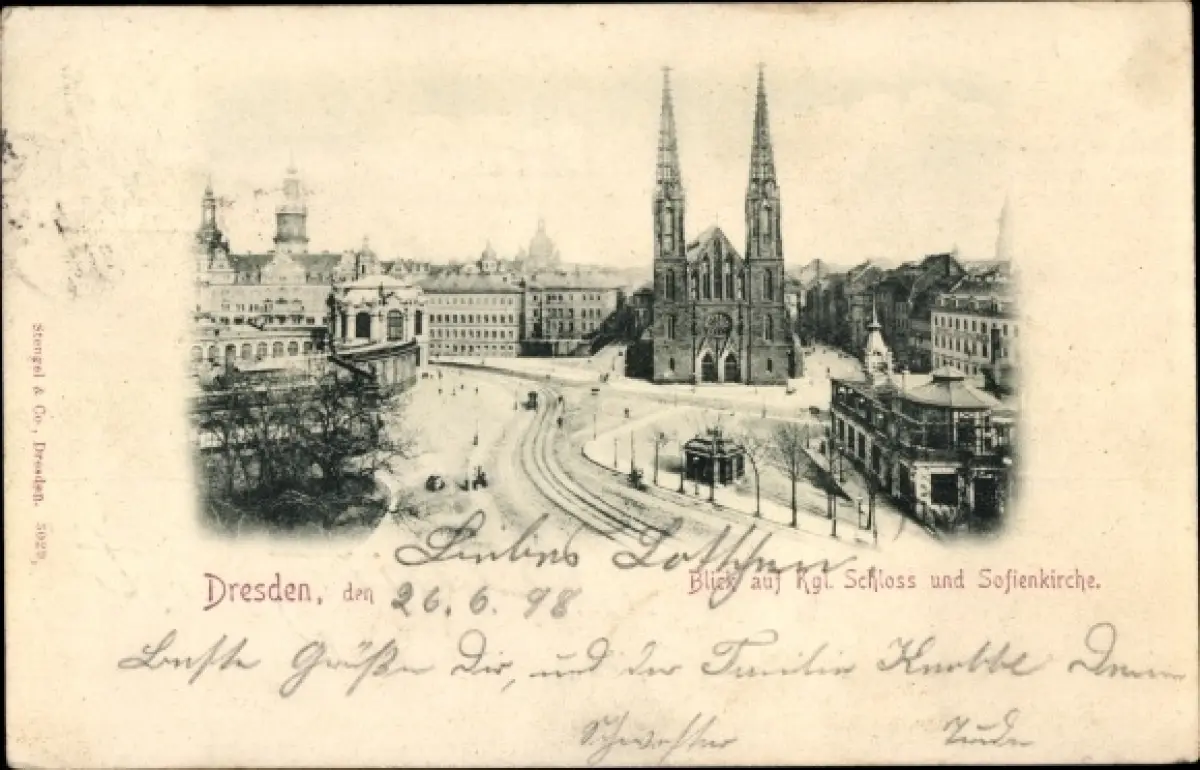 Stengel & Co., Dresden. 5029.
Liebes Lottchen
Dresden, den 26.6.98
Blick auf Kgl. Schloss und Sofienkirche.
Beste Grüße Dir, und der Familie Knobbe Deine
Schwester